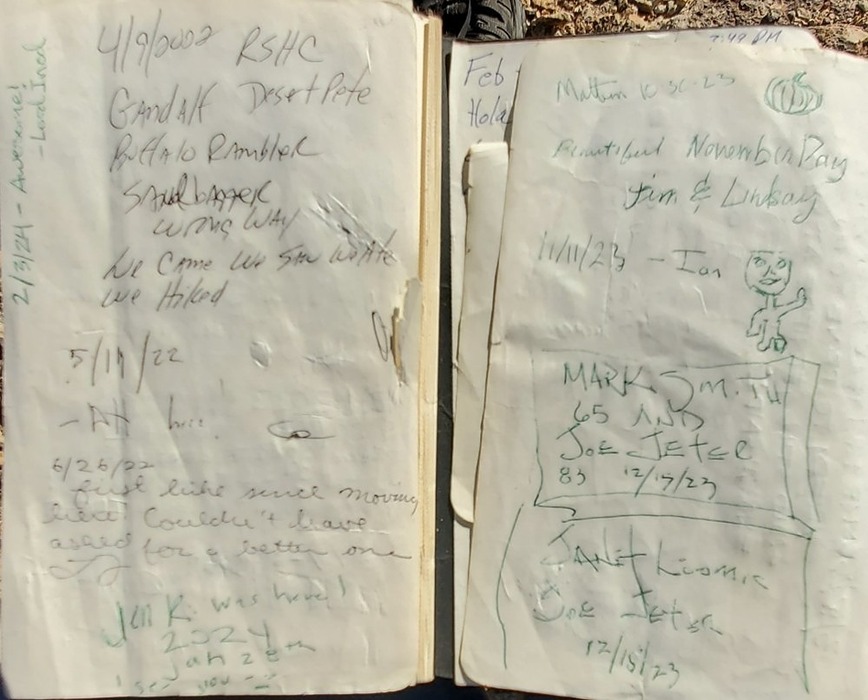 4/9/2022 RSHC
Gandalf Desert Pete
Buffalo Rambler
Sandbagger
Wrong Way
We Came We Saw We Ate
We Hiked
5/11/22
6/26/22
first hike since moving
here. Couldn't have
asked for a better one
Jen K. was here!
2024
Jan 28th
2/3/24 - Awesome!
Feb
Hola
7:49 PM
Beautiful November Day
Jim & Lindsay
11/11/23 - Ian
MARK SMITH
65 AND
JOE JETER
83 12/15/23
JANET
JOE JETER
12/15/23